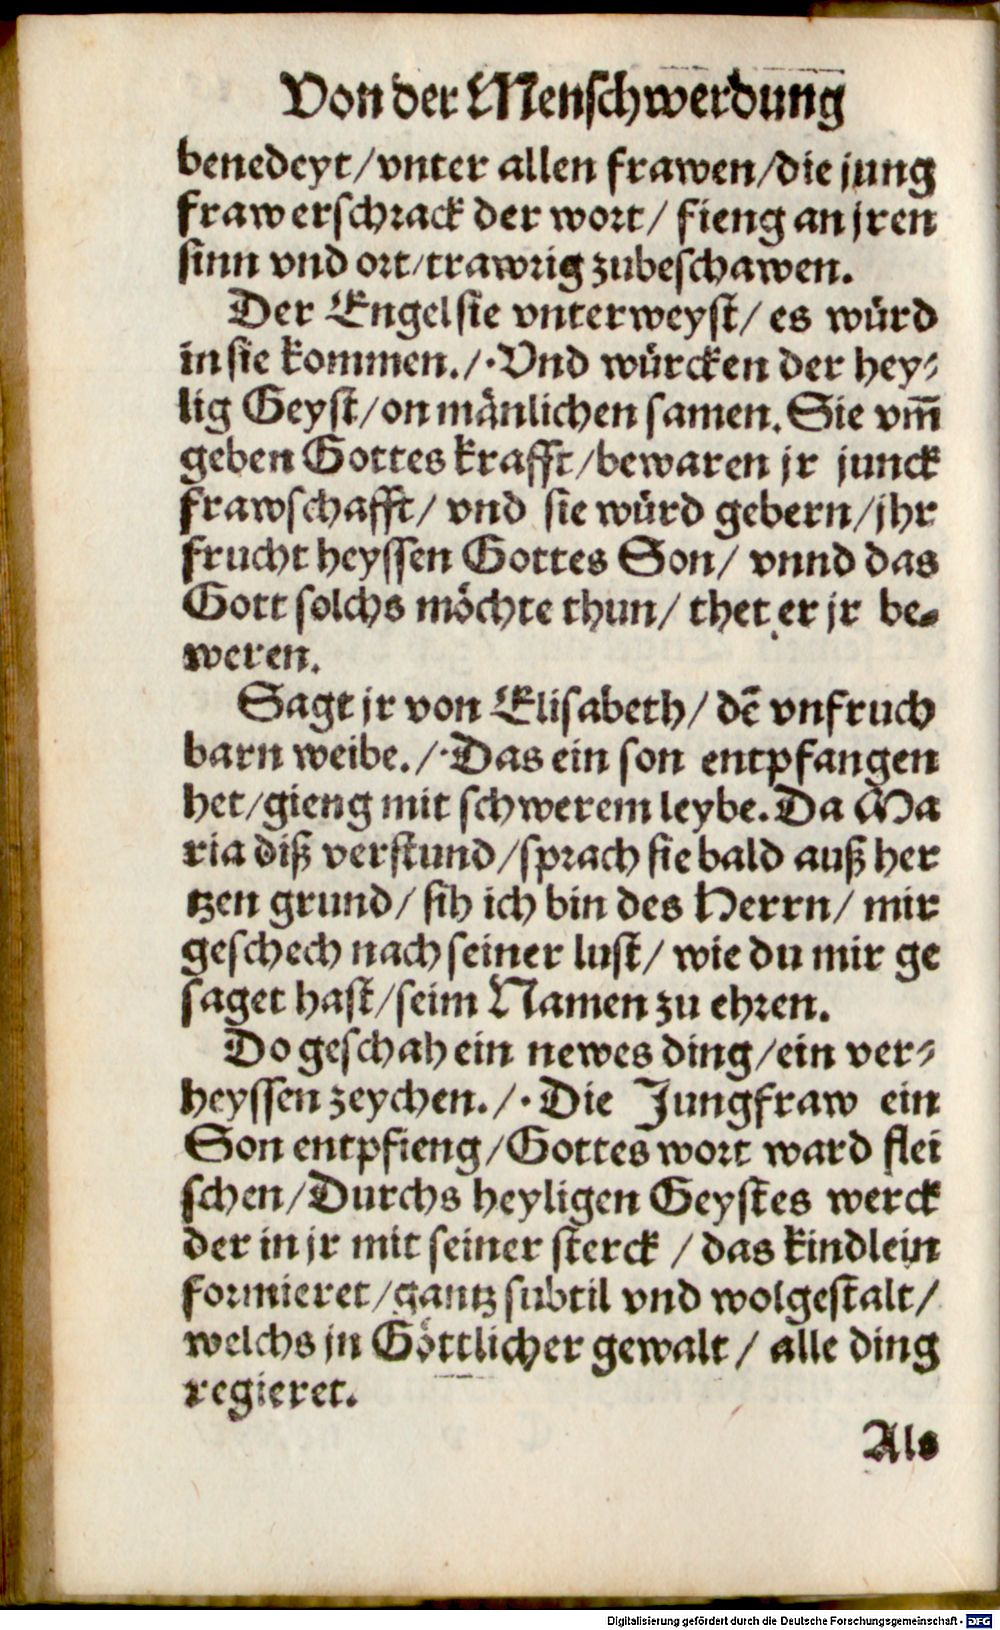 Von der Menschwerdung
benedeyt/vnter allen frawen/die jung
fraw erschrack der wort/ fieng an jren
sinn vnd ort/trawrig zubeschawen.
Der Engel sie vnterweyst/ es würd
in sie kommen./·Vnd würcken der hey⸗
lig Geyst/on mänlichen samen. Sie vm̃
geben Gottes krafft/bewaren jr junck
frawschafft/ vnd sie würd gebern/jhr
frucht heyssen Gottes Son/ vnnd das
Gott solchs möchte thun/ thet er jr be⸗
weren.
Sagt jr von Elisabeth/ dē vnfruch
barn weibe./·Das ein son entpfangen
het/gieng mit schwerem leybe. Da Ma
ria diß verstund/sprach sie bald auß her
tzen grund/ sih ich bin des Herrn/ mir
geschech nach seiner lust/ wie du mir ge
saget hast/seim Namen zu ehren.
Do geschah ein newes ding/ein ver⸗
heyssen zeychen./·Die Jungfraw ein
Son entpfieng/Gottes wort ward flei
schen/Durchs heyligen Geystes werck
der in jr mit seiner sterck /das kindlein
formieret/gantz subtil vnd wolgestalt/
welchs in Göttlicher gewalt/ alle ding
regieret.
Als
Digitalisierung gefördert durch die Deutsche Forschungsgemeinschaft - DFG